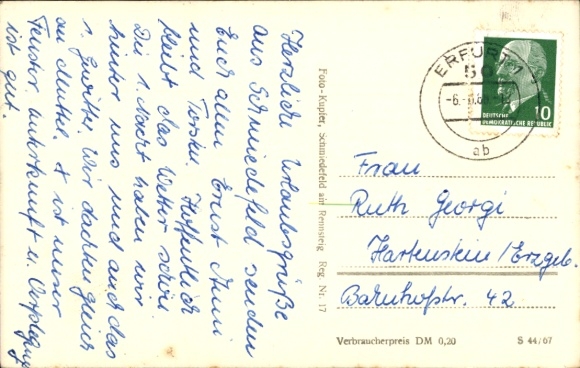 Herzliche Urlaubsgrüße
aus Schmiedefeld senden
Euch allen Ernst Anni
und Hoffentlich
bleibt das Wetter schön
Die 1. Nacht haben wir
hinter uns und auch das
1. Gewitter Wir dachten gleich
an Muttel. X ist unser
Fenster Unterkunft u. Verpflegung
ist gut.
Foto-Kupfer, Schmiedefeld am Rennsteig Reg. Nr. 17
ERFURT 1
50
-6.
ab
10
DEUTSCHE
DEMOKRATISCHE REPUBLIK
Frau
Ruth Georgi
Hartenstein/Erzgeb.
Bahnhofstr. 42
Verbraucherpreis DM 0,20 S 44/67